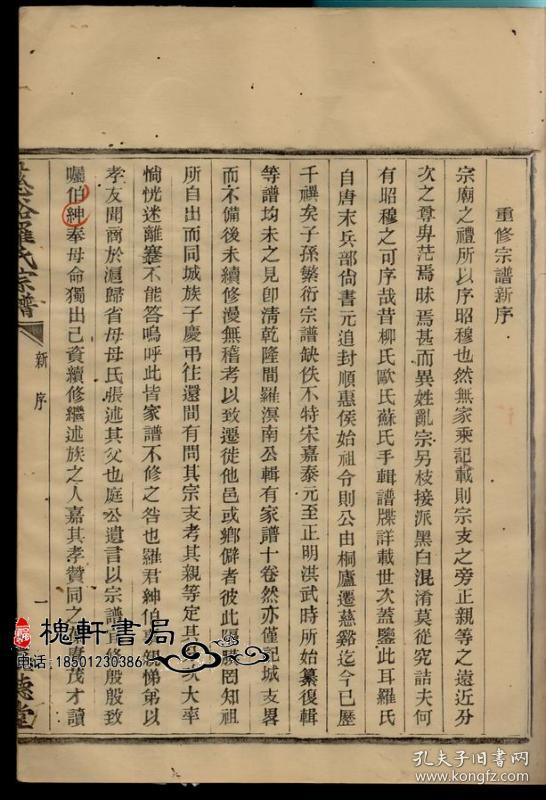 重修宗譜新序
宗廟之禮所以序昭穆也然無家乘記載則宗支之旁正親等之遠近分
次之尊卑茫焉昧焉甚而異姓亂宗另枝接派黑白混淆莫從究詰夫何
有昭穆之可序哉昔柳氏歐氏蘇氏手輯譜牒詳載世次蓋鑒此耳羅氏
自唐末兵部尙書元追封順惠侯始祖令則公由桐廬遷慈谿迄今已歷
千禩矣子孫繁衍宗譜缺佚不特宋嘉泰元至正明洪武時所始纂復輯
等譜均未之見卽淸乾隆間羅溟南公輯有家譜十卷然亦僅記城支畧
而不備後未續修漫無稽考以致遷徙他邑或鄉僻者彼此罔知祖
所自出而同城族子慶弔往還間有問其宗支考其親等定其次大率
惝恍迷離蹇不能答嗚呼此皆家譜不修之咎也羅君紳伯親悌弟以
孝友聞商於滬歸省母母氏張述其父也庭公遺言以宗譜修殷殷致
囑伯紳奉母命獨出己資續修繼述族之人嘉其孝贊同之茂才讀
慈谿羅氏宗譜
新序
一
德堂
槐軒書局
电话:18501230386
孔夫子旧书网
www.kongfz.com